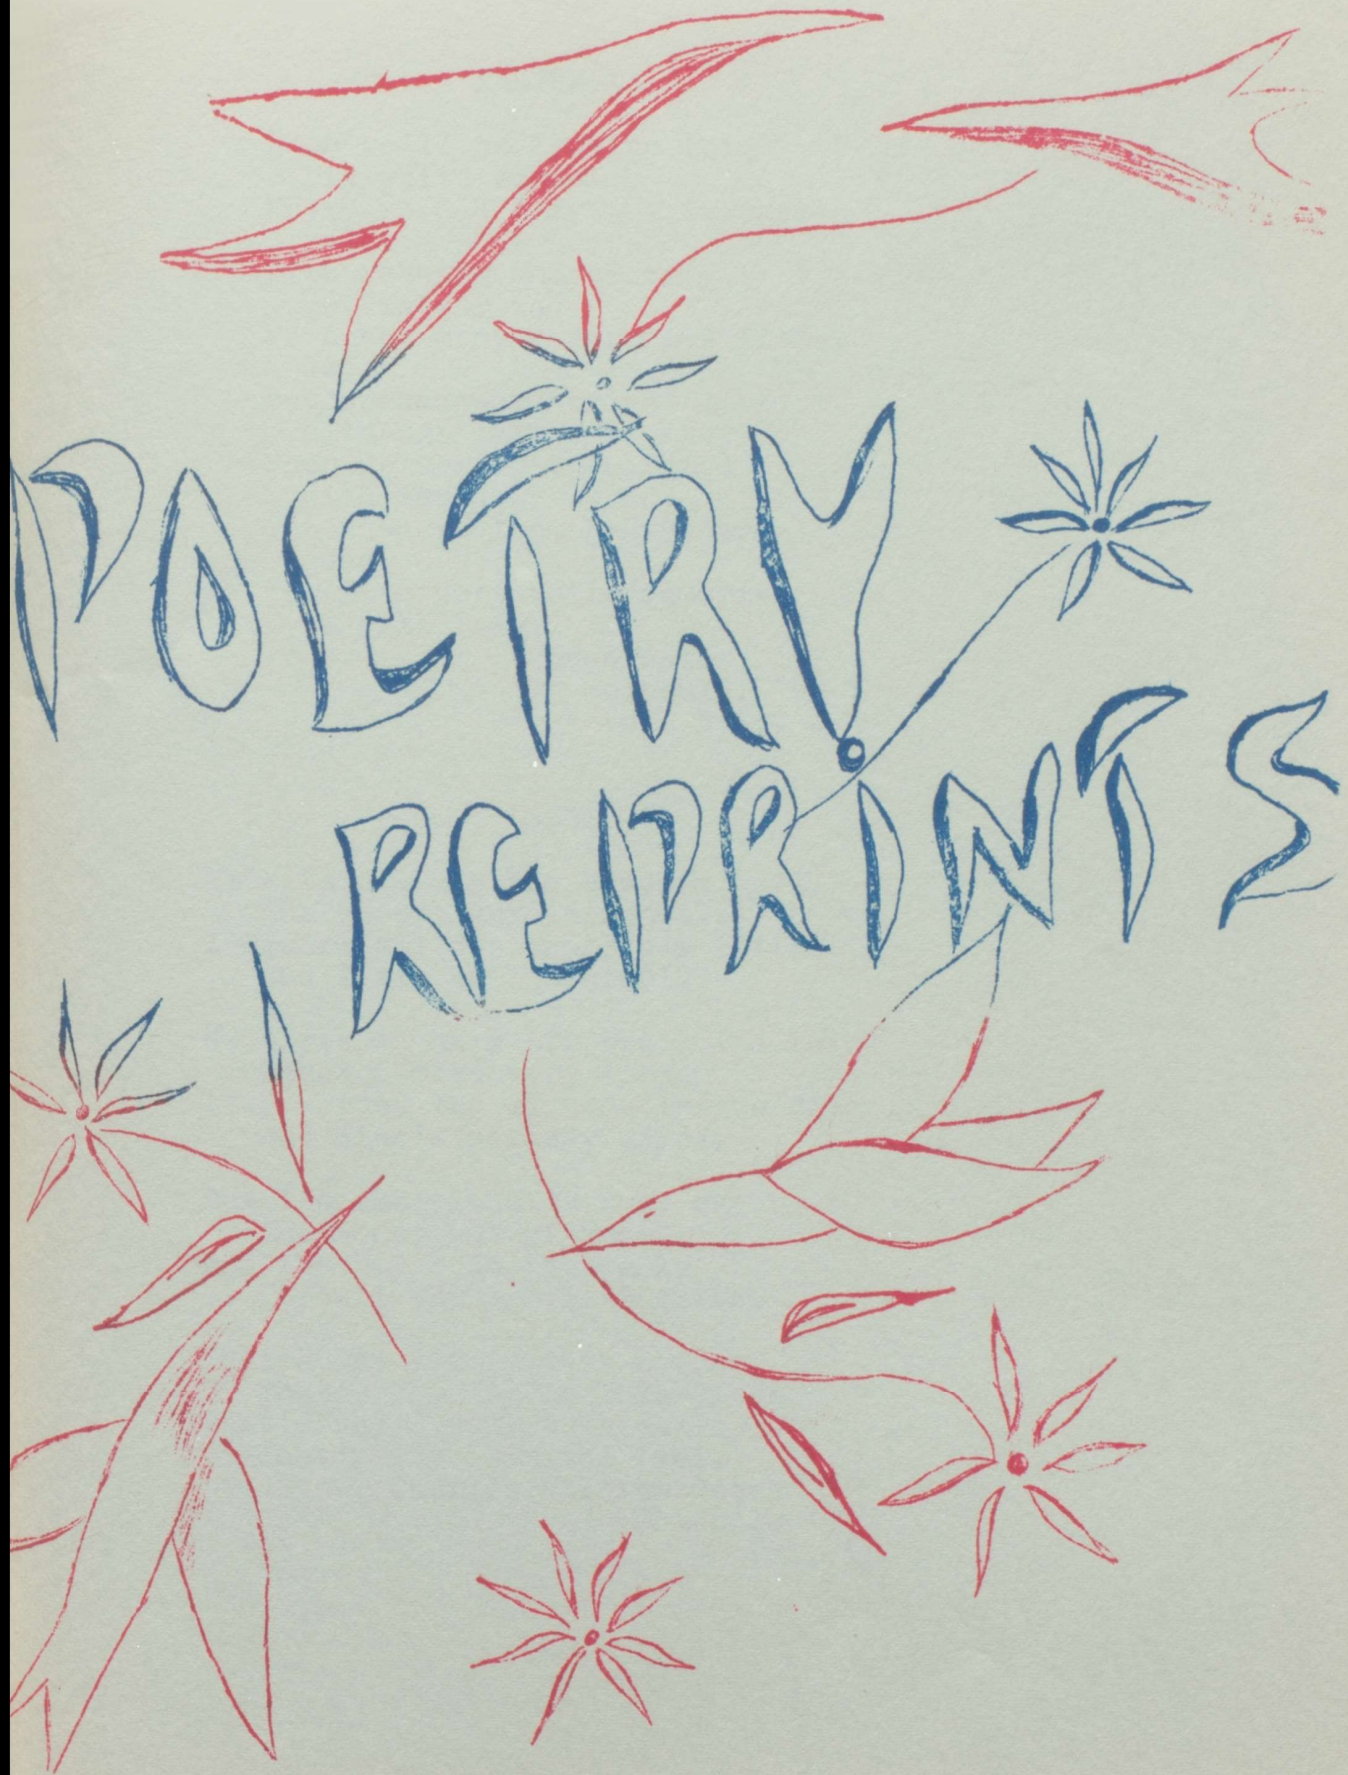 POETRY
REPRINTS